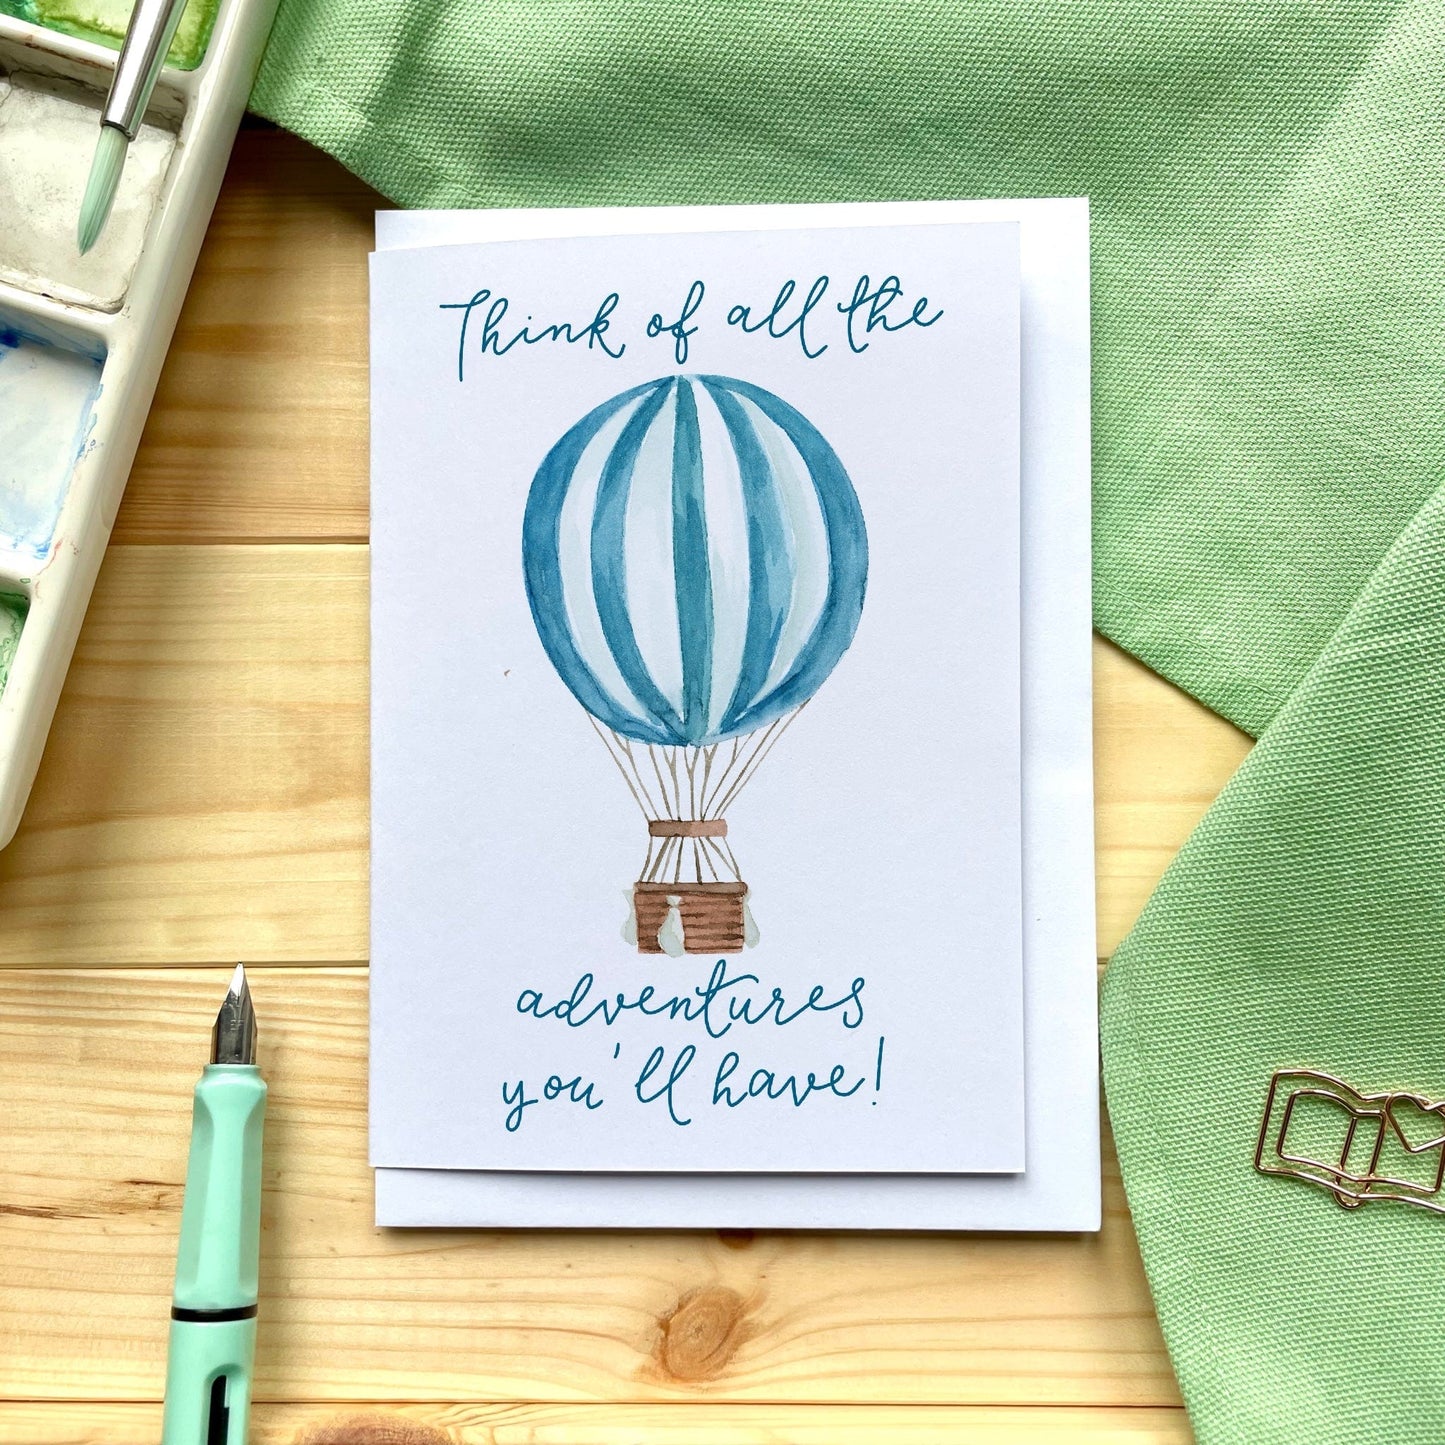 Think of all the
adventures
you'll have!